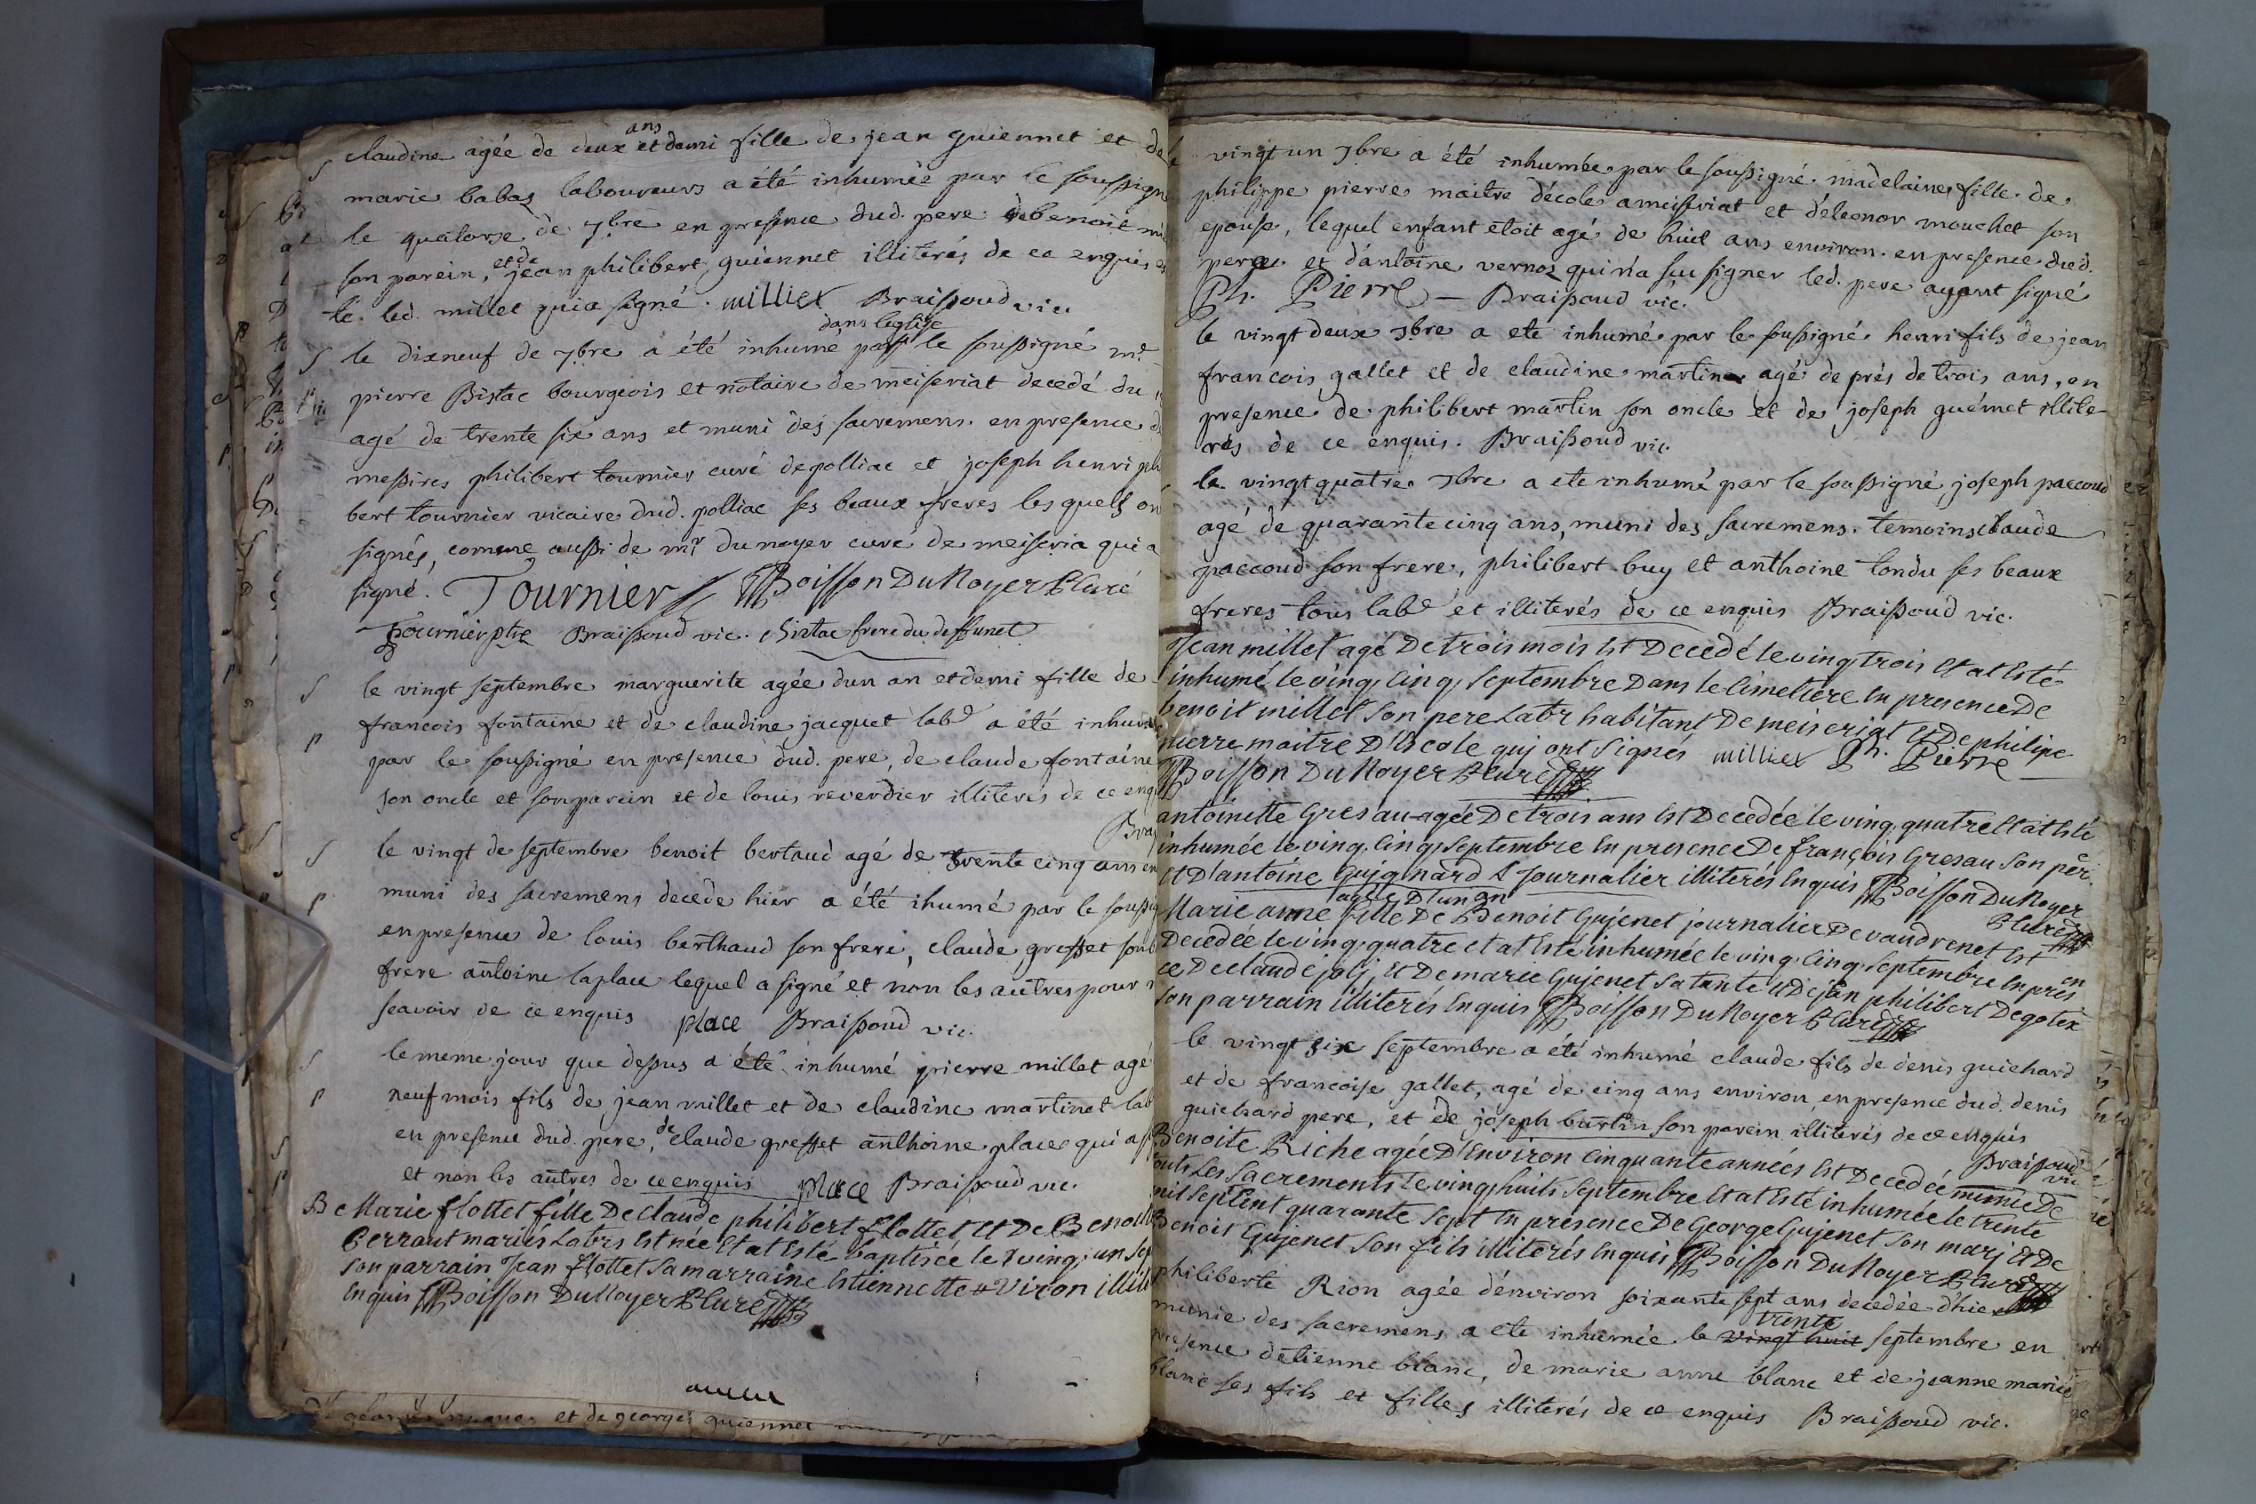 claudine agée de deux ans et demi fille de jean guiennet et de
marie babas laboureurs a été inhumée par le soussigné
le quatorze de 7bre en presence dud. pere de benoit
son parein, et de jean philibert guiennet illiterés de ce enquis
led. millet qui a signé. milliet Braissoud vic.
le dixneuf de 7bre a été inhumé dans leglise par le soussigné me
pierre Bistac bourgeois et notaire de meiseriat decedé du
agé de trente six ans et muni des sacremens. en presence de
messires philibert tournier curé de polliac et joseph henri phi
bert tournier vicaire dud. polliac ses beaux freres lesquels on
signés, comme aussi de mr. du noyer curé de meiseria qui a
signé. Tournier Boisson Du Noyer Curé
Tournier ptre Braissoud vic. Bistac frere du deffunct
le vingt septembre marguerite agée dun an et demi fille de
francois fontaine et de claudine jacquet lab. a été inhumée
par le soussigné en presence dud. pere, de claude fontaine
son oncle et son parein et de louis reverdier illiterés de ce enq
Brai
le vingt de septembre benoit bertaud agé de trente cinq ans en
muni des sacremens decede hier a été ihumé par le soussig
en presence de louis berthaud son frere, claude gresset son
frere antoine laplace lequel a signé et non les autres pour
scavoir de ce enquis place Braissoud vic.
le meme jour que dessus a été inhumé pierre millet agé
neuf mois fils de jean millet et de claudine martinet lab
en presence dud. pere, de claude gresset anthoine place qui a
et non les autres de ce enquis place Braissoud vic.
B e Marie flottet fille De claude philibert flottet Et De Benoite
Perraut mariés Labrs Est née Et at Esté baptisée le vingt un sep
son parrain Jean flottet sa marraine Estiennette Viron illit
Enquis Boisson Du Noyer Curé
et de george guiennet
vingt un 7bre a été inhumée par le soussigné madelaine fille de
philippe pierre maitre décole a meiseriat et déleonor mouchet son
epouse, lequel enfant etoit agé de huit ans environ. en presence dud.
pere et dántoine vernoz qui n'a scu signer led. pere ayant signé
Ph. Pierre Braissoud vic.
le vingt deux 7bre a eté inhumé par le sousigné henri fils de jean
francois gallet et de claudine martin agé de prés de trois ans, en
presence de philibert martin son oncle et de joseph guémet illite
rés de ce enquis. Braissoud vic.
le vingt quatre 7bre a eté inhumé par le soussigné, joseph paccoud
agé de quarante cinq ans, muni des sacremens. temoins claude
paccoud son frere, philibert buy et anthoine tondu ses beaux
freres tous lab. et illiterés de ce enquis Braissoud vic.
Jean millet agé De trois mois Est Decedé le vingt trois Et at Esté
inhumé le vingt Cinq septembre Dans le Cimetiere En presence De
benoit millet son pere Labr habitant De meiseriat Et De philipe
pierre maitre D'Escole qui ont signés milliet Ph. Pierre
Boisson Du Noyer Curé
antoinette Gresau agée De trois ans Est Decedée le vingt quatre Et at Esté
inhumée le vingt Cinq septembre En presence De françois Gresau son pere
Et D'antoine Guignard Journalier illiterés Enquis Boisson Du Noyer
Curé
Marie anne agée D'un an fille De Benoit Gujenet journalier De vaudrenet Est
Decedée le vingt quatre et at Esté inhumée le vingt Cinq septembre En presen
ce De claude joly Et De marie Gujenet sa tante Et De jean philibert Degotex
son parrain illiterés Enquis Boisson Du Noyer Curé
le vingt six septembre a été inhumé claude fils de denis guichard
et de francoise gallet, agé de cinq ans environ en presence dud. denis
guichard pere, et de joseph burtin son parein illiterés de ce enquis
Braissoud vic
Benoite Riche agée D'Environ Cinquante années Est Decedée munie De
touts Les Sacrements le vingt huit Septembre Et at Esté inhumée le trente
mil sept Cent quarante sept En presence De George Gujenet son mary Et De
Benoit Gujenet son fils illiterés Enquis Boisson Du Noyer Curé
philiberte Rion agée dénviron soixante sept ans decedée d'hier
munie des sacremens a eté inhumée le vingt huit trente septembre en
presence détienne blanc, de marie anne blanc et de jeanne marie
blanc ses fils et filles illiterés de ce enquis Braissoud vic.